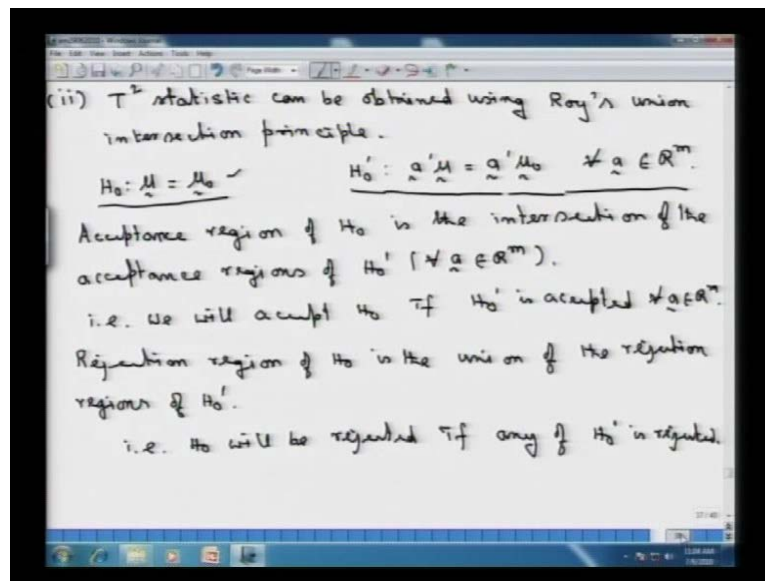 File Edit View Insert Actions Tools Help
Page Width
(ii) T² statistic can be obtained using Roy's union
intersection principle.
H₀: μ = μ₀ ✓ H₀': a'μ = a'μ₀ ∀ a ∈ ℝᵐ.
Acceptance region of H₀ is the intersection of the
acceptance regions of H₀' (∀ a ∈ ℝᵐ).
i.e. we will accept H₀ if H₀' is accepted ∀ a ∈ ℝᵐ.
Rejection region of H₀ is the union of the rejection
regions of H₀'.
i.e. H₀ will be rejected if any of H₀' is rejected.